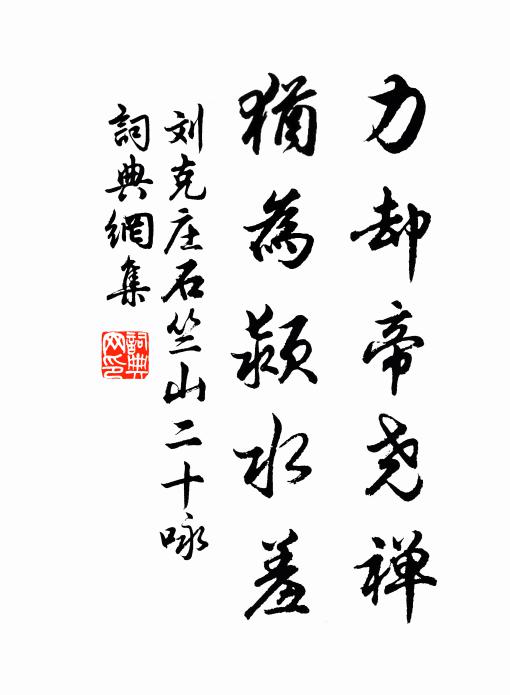 力却帝尧禅
猶為颍水羞
刘克庄石竺山二十咏
詞典網集
詞典網印